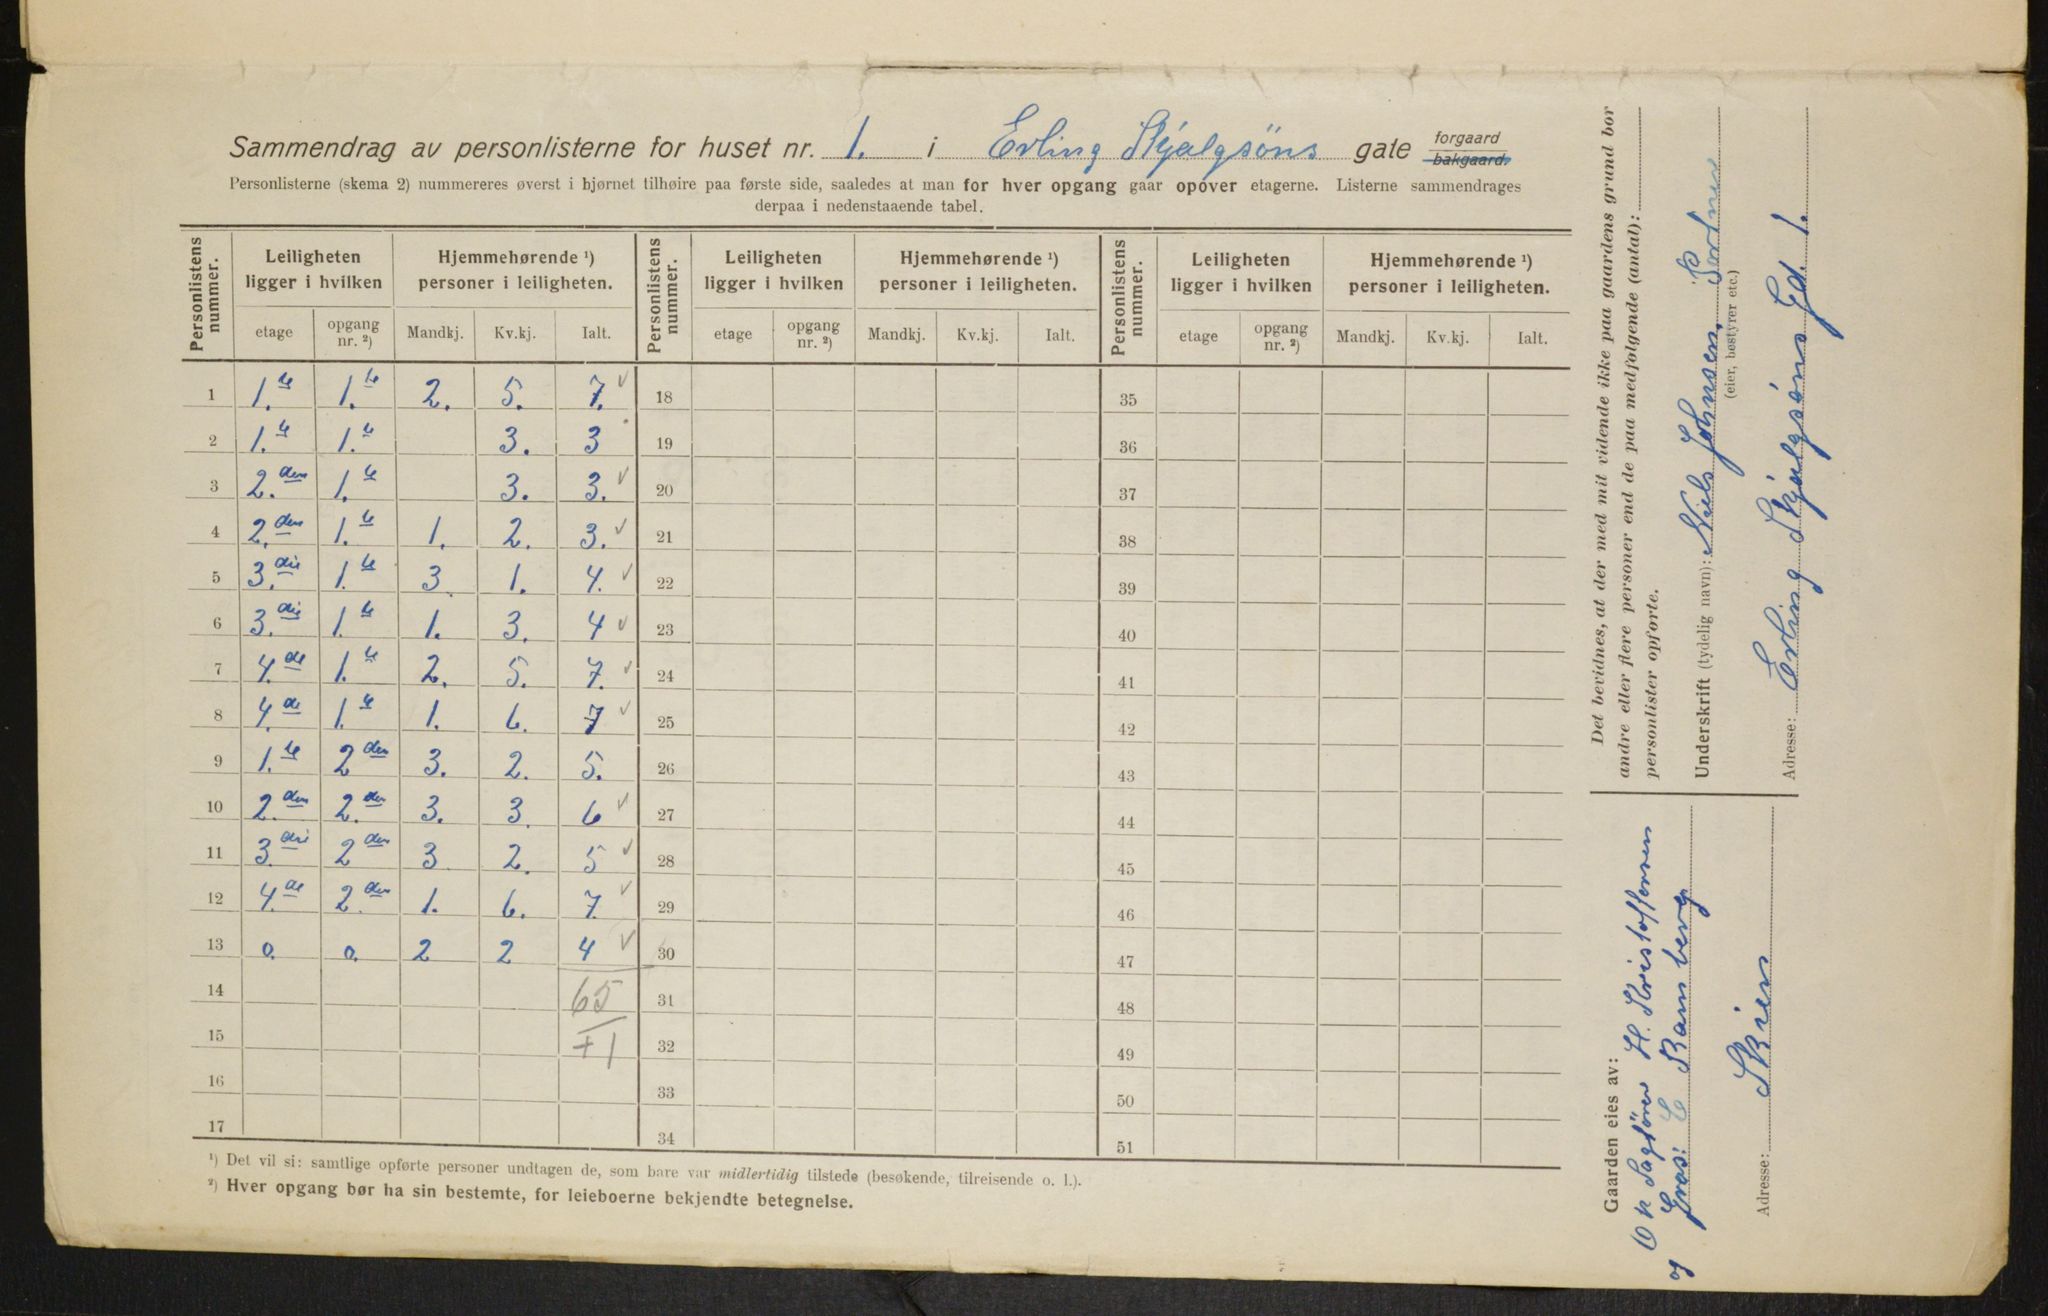 Sammendrag av personlisterne for huset nr. 1. i Erling Skjalgsöns gate forgaard bakgaard.
Personlisterne (skema 2) nummereres øverst i hjørnet tilhøire paa første side, saaledes at man for hver opgang gaar opover etagerne. Listerne sammendrages
derpaa i nedenstaaende tabel.
Personlistens nummer. Leiligheten ligger i hvilken Hjemmehørende ¹) personer i leiligheten. Personlistens nummer. Leiligheten ligger i hvilken Hjemmehørende ¹) personer i leiligheten. Personlistens nummer. Leiligheten ligger i hvilken Hjemmehørende ¹) personer i leiligheten.
etage opgang nr. ²) Mandkj. Kv.kj. Ialt. etage opgang nr. ²) Mandkj. Kv.kj. Ialt. etage opgang nr. ²) Mandkj. Kv.kj. Ialt.
1 1.te 1.te 2. 5. 7. ✓ 18 35
2 1.te 1.te 3. 3 19 36
3 2.den 1.te 3. 3. ✓ 20 37
4 2.den 1.te 1. 2. 3. ✓ 21 38
5 3.die 1.te 3 1. 4. ✓ 22 39
6 3.die 1.te 1. 3. 4 ✓ 23 40
7 4.de 1.te 2. 5. 7. ✓ 24 41
8 4.de 1.te 1. 6. 7 ✓ 25 42
9 1.te 2den 3. 2. 5. 26 43
10 2.den 2.den 3. 3. 6 ✓ 27 44
11 3.die 2den 3 2. 5 ✓ 28 45
12 4.de 2.den 1. 6. 7. ✓ 29 46
13 0. 0. 2 2 4 ✓ 30 47
14 65 31 48
15 + 1 32 49
16 33 50
17 34 51
¹) Det vil si: samtlige opførte personer undtagen de, som bare var midlertidig tilstede (besøkende, tilreisende o. l.).
²) Hver opgang bør ha sin bestemte, for leieboerne bekjendte betegnelse.
Det bevidnes, at der med mit vidende ikke paa gaardens grund bor
andre eller flere personer end de paa medfølgende (antal):
personlister opførte.
Underskrift (tydelig navn): Niels Johnsen, Portner
(eier, bestyrer etc.)
Adresse: Erling Skjalgsöns Gd. 1.
Gaarden eies av:
O r Sagförer H. Kristoffersen
og Gros: C Bamberg
Adresse: Skien